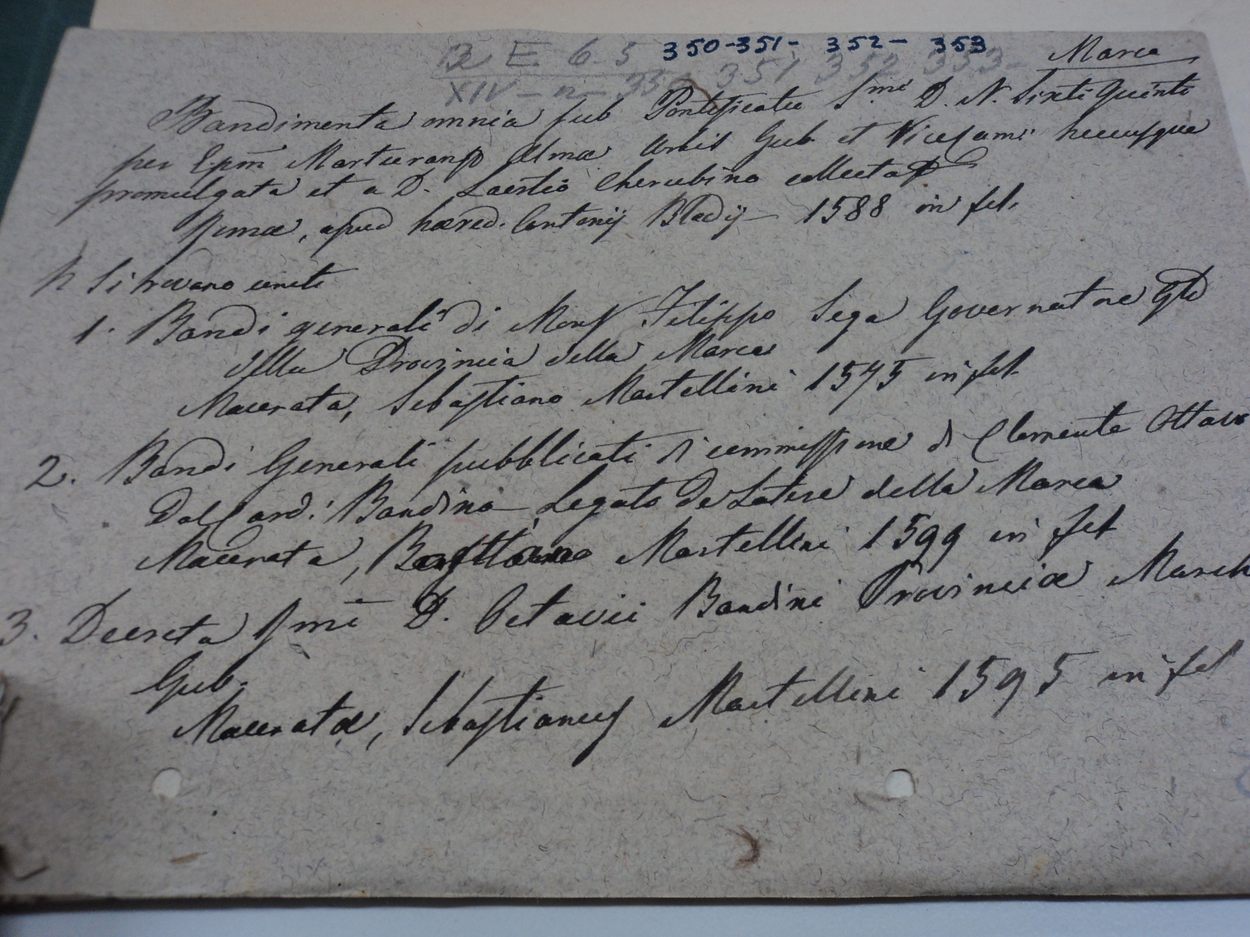 B E 6 5 350-351- 352- 353 Marca
XIV - n - 350 351 352 353-
Bandimenta omnia sub Pontificatu S.mi D. N. Sixti Quinti
per Epm Marturanẽ Almæ Urbis Gub. et Vicecam: hucusque
promulgata et a D. Laertio Cherubino collecta
Romæ, apud hæred. Antonij Bladij 1588 in fol.
Si trovano uniti
1. Bandi generali di Mons Filippo Sega Governatore
della Provincia della Marca
Macerata, Sebastiano Martellini 1575 in fol.
2. Bandi Generali pubblicati di commissione di Clemente Ottavo
Dal Card. Bandino Legato De Latere della Marca
Macerata, Martellini 1599 in fol
3. Decreta D. Octavii Bandini Provinciæ March
Gub.
Maceratæ, Sebastianus Martellini 1595 in fol